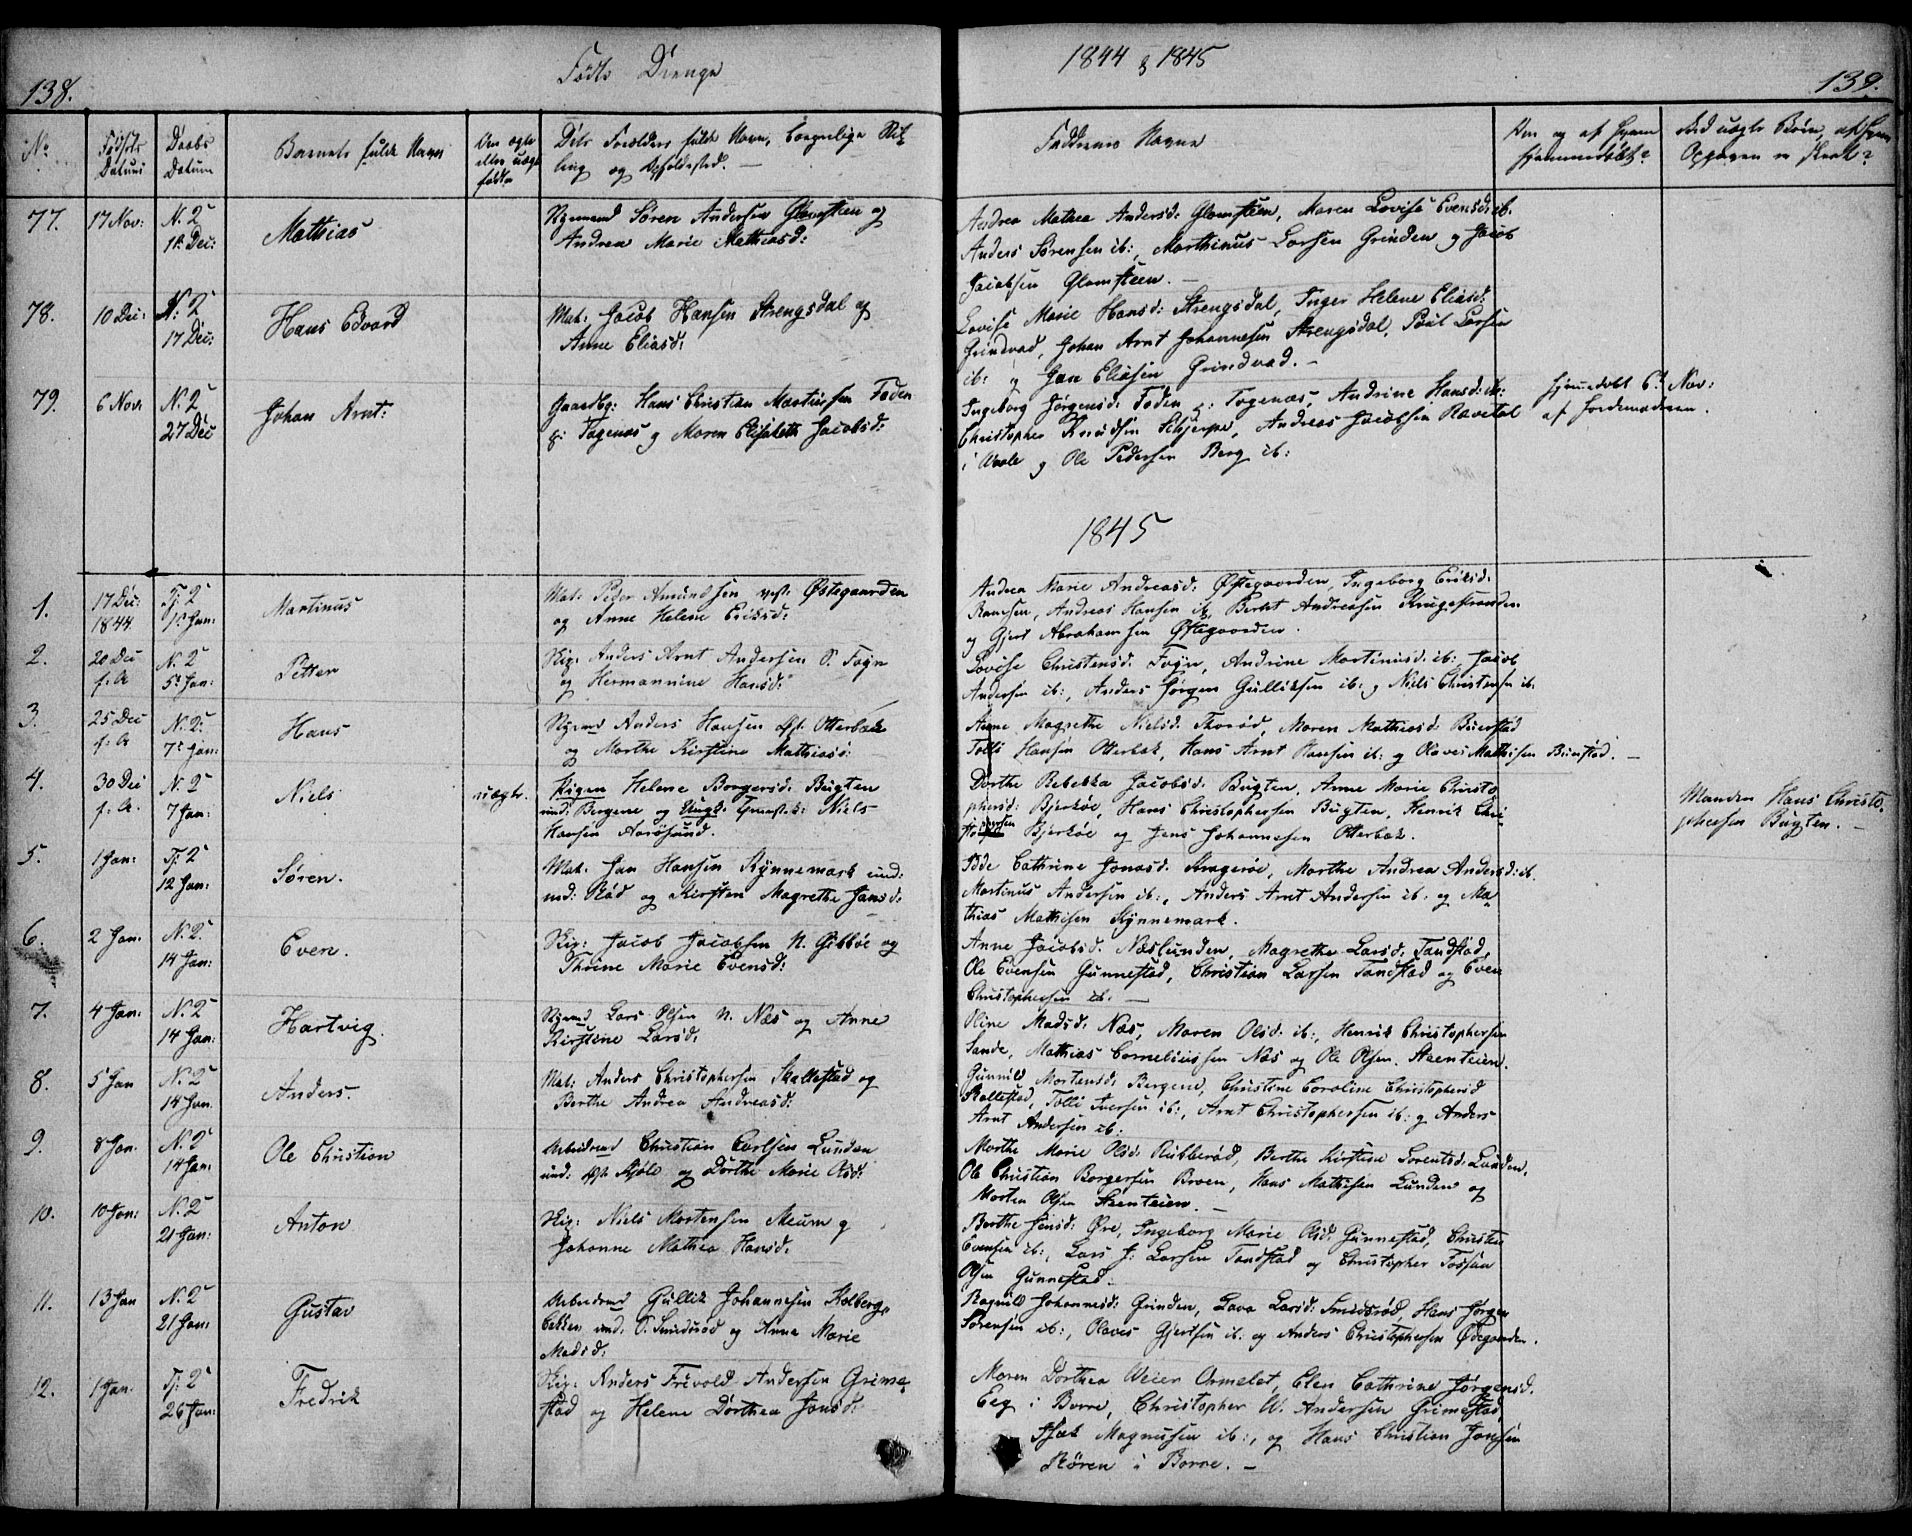 138.
Fødte Drenge
1844 & 1845
139.
No
Fødsels Datum
Daabs Datum
Barnets fulde Navn
Om ægte eller uægte født
Dets Forældres fulde Navn, borgerlige Stilling og Opholdssted. —
Faddernes Navne
Om og af hvem hjemmedøbt?
77.
17 Nov:
N. 2
1st Dec:
Mathias
Søren Andersen Glomsteen og
Andrea Marie Mathiasd:
Andrea Mathea Andersd: Glomsteen, Maren Lovise Evensd: ib:
Anders Sørensen ib:, Marthinus Larsen Grinden og Jacob
Jacobsen Glomsteen. —
78.
10 Dec:
N: 2
17 Dec:
Hans Edvard
Mat: Jacob Hansen Strengsdal og
Anne Eliasd:
Lovise Marie Hansd: Strengsdal, Inger Helene Eliasd:
Grindvad, Johan Arnt Johannesen Strengsdal, Poul Larsen
ib: og Jan Eliasen Grindvad. —
79.
6 Nov
N: 2
27 Dec
Johan Arnt:
Gaardbr: Hans Christian Martinsen Foden
g: Togenæs og Maren Elisabeth Jacobsd:
Ingeborg Jørgensd: Foden g: Togenæs, Andrine Hansd: ib:
Christopher Knudsen Schjerpe, Andreas Jacobsen Ravetal
i Vaale og Ole Pedersen Berg ib:
hjemmedøbt 6t Nov:
af Jordemoderen.
1845
1.
17 Dec:
1844
Tj: 2
1st Jan:
Martinus
Mat: Peder Amundsen Østegaarden
og Anne Helene Eriksd:
Andrea Marie Andreasd: Østegaarden, Ingeborg Eriksd:
Ramsen, Andreas Hansen ib, Bernt Andreasen Krugestranden
og Gjert Abrahamsen Østegaarden.
2.
20 Dec
f: A
N. 2
5t Jan:
Petter
Skip: Anders Arnt Andersen S. Føyn
og Hermannine Hansd:
Lovise Christensd: Føyn, Andrine Martinusd: ib: Jacob
Andersen ib:, Anders Jørgen Gulliksen ib: og Niels Christensen ib:
3.
25 Dec
f: A
N. 2:
7t Jan:
Hans
Anders Hansen Otterbæk
og Marthe Kirstine Mathiasd:
Anne Magrethe Nielsd: Thorød, Maren Mathiasd: Buerstad
Tolli Hansen Otterbæk, Hans Arnt Hansen ib: og Olaves Mathisen Buerstad. —
4.
30 Dec
f: A.
N. 2
7 Jan:
Niels
uægte.
Pigen Helene Borgersd: Bugten
und: Bergene og Ungk: Niels
Hansen Aarøsund.
Dorthe Rebekka Jacobsd: Bugten, Anne Marie Christo
phersd: Bjerkøe, Hans Christophersen Bugten, Henrik Chri
stophersen Bjerkøe og Jens Johannesen Otterbæk.
Manden Hans Christo
phersen Bugten. —
5.
1 Jan:
Tj: 2
12 Jan:
Søren.
Mat: Jan Hansen Kynnemark
und: Rød og Kirsten Magrethe Jansd:
Cathrine Jonasd: Kragerøe, Marthe Andrea Andersd: ib.
Martinus Andersen ib:, Anders Arnt Andersen ib: og Ma
thias Mathisen Kynnemark.
6.
2 Jan.
N. 2.
14 Jan:
Even.
Skip: Jacob Jacobsen N. Gibbøe og
Thrine Marie Evensd:
Anne Jacobsd: Næslunden, Magrethe Larsd: Tandstad,
Ole Evensen Gunnestad, Christian Larsen Tandstad og Even
Christophersen ib: —
7.
4 Jan.
N. 2
14 Jan:
Hartvig.
Lars Olsen N. Næs og Anne
Kirstine Larsd.
Oline Madsd: Næs, Maren Olsd: ib:, Henrik Christophersen
Sande, Mathias Corneliussen Næs og Ole Olsen Steenteien.
8.
5 Jan
N. 2
14 Jan.
Anders.
Mat: Anders Christophersen Skallestad og
Berthe Andrea Andreasd:
Gunnild Mortensd: Bergene, Christine Caroline Christophersd
Skallestad, Tolli Iversen ib:, Arnt Christophersen ib: og Anders
Arnt Andersen ib:
9.
8 Jan.
N. 2
14 Jan:
Ole Christian
Arbeidsmd Christian Carlsen Lunden
und: og Dorthe Marie Olsd:
Marthe Marie Olsd: Rubberød, Berthe Kirstine Lorentsd: Lunden,
Ole Christian Borgersen Broen, Hans Mathisen Lunden og
Morten Olsen Steenteien. —
10.
10 Jan:
N. 2
21 Jan:
Anton
Skip: Niels Mortensen Meum og
Johanne Mathea Hansd.
Berthe Jensd: Øre, Ingeborg Marie Olsd: Gunnestad, Christen
Evensen ib:, Lars J: Larsen Tandstad og Christopher
Olsen Gunnestad.
11.
13 Jan
N. 2
21 Jan:
Gustav
Arbeidsmd Gullik Johannesen Kolberg,
bakken und: S. Smidsrød og Anne Marie
Madsd:
Ragnild Johannesd: Grinden, Lava Larsd: Smidsrød, Hans Jørgen
Sørensen ib:, Olaves Gjertsen ib: og Anders Christophersen Ødegaarden.
12.
1 Jan.
Tj: 2
26 Jan:
Fredrik
Skip: Anders Frivold Andersen Grime
stad og Helene Dorthea Jansd:
Maren Dorthea Weier Ormelet, Elen Cathrine Jørgensd.
Eeg i Borre, Christopher W. Andersen Grimestad,
Isak Magnusen ib:, og Hans Christian Jansen
Røren i Borre. —